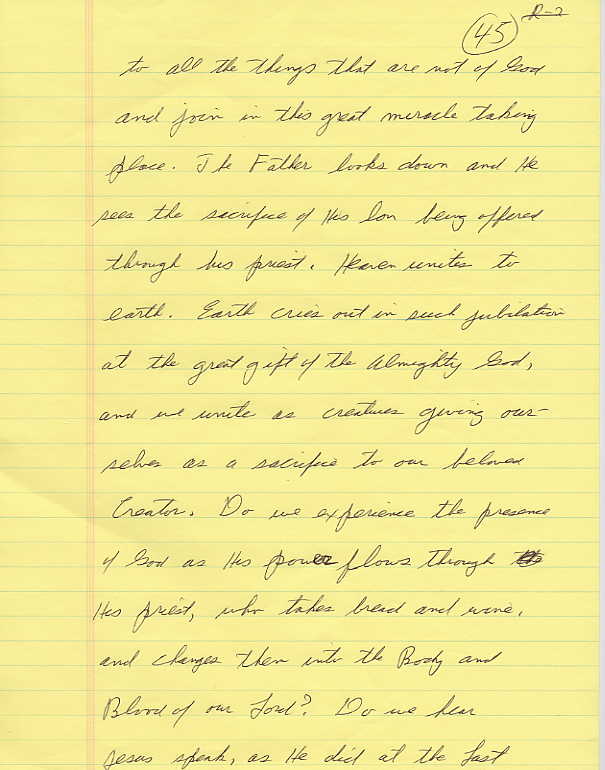 R-2
45
to all the things that are not of God
and join in this great miracle taking
place. The Father looks down and He
sees the sacrifice of His Son being offered
through his priest. Heaven unites to
earth. Earth cries out in such jubilation
at the great gift of the Almighty God,
and we unite as creatures giving our-
selves as a sacrifice to our beloved
Creator. Do we experience the presence
of God as His power flows through
His priest, who takes bread and wine,
and changes them into the Body and
Blood of our Lord? Do we hear
Jesus speak, as He did at the Last